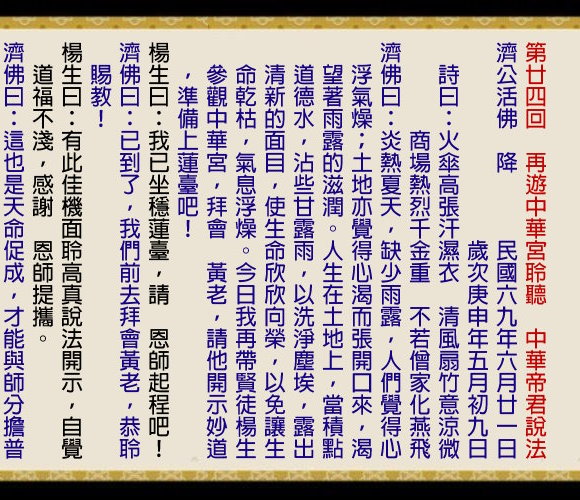 第廿四回　再遊中華宮聆聽　中華帝君說法
濟公活佛　降　　民國六九年六月廿一日
歲次庚申年五月初九日
詩曰：火傘高張汗濕衣　清風扇竹意涼微
商場熱烈千金重　不若僧家化燕飛
濟佛曰：炎熱夏天，缺少雨露，人們覺得心
浮氣燥；土地亦覺得心渴而張開口來，渴
望著雨露的滋潤。人生在土地上，當積點
道德水，沾些甘露雨，以洗淨塵埃，露出
清新的面目，使生命欣欣向榮，以免讓生
命乾枯，氣息浮燥。今日我再帶賢徒楊生
參觀中華宮，拜會　黃老，請他開示妙道
，準備上蓮臺吧！
楊生曰：我已坐穩蓮臺，請　恩師起程吧！
濟佛曰：已到了，我們前去拜會黃老，恭聆
賜教！
楊生曰：有此佳機面聆高真說法開示，自覺
道福不淺，感謝　恩師提攜。
濟佛曰：這也是天命促成，才能與師分擔普